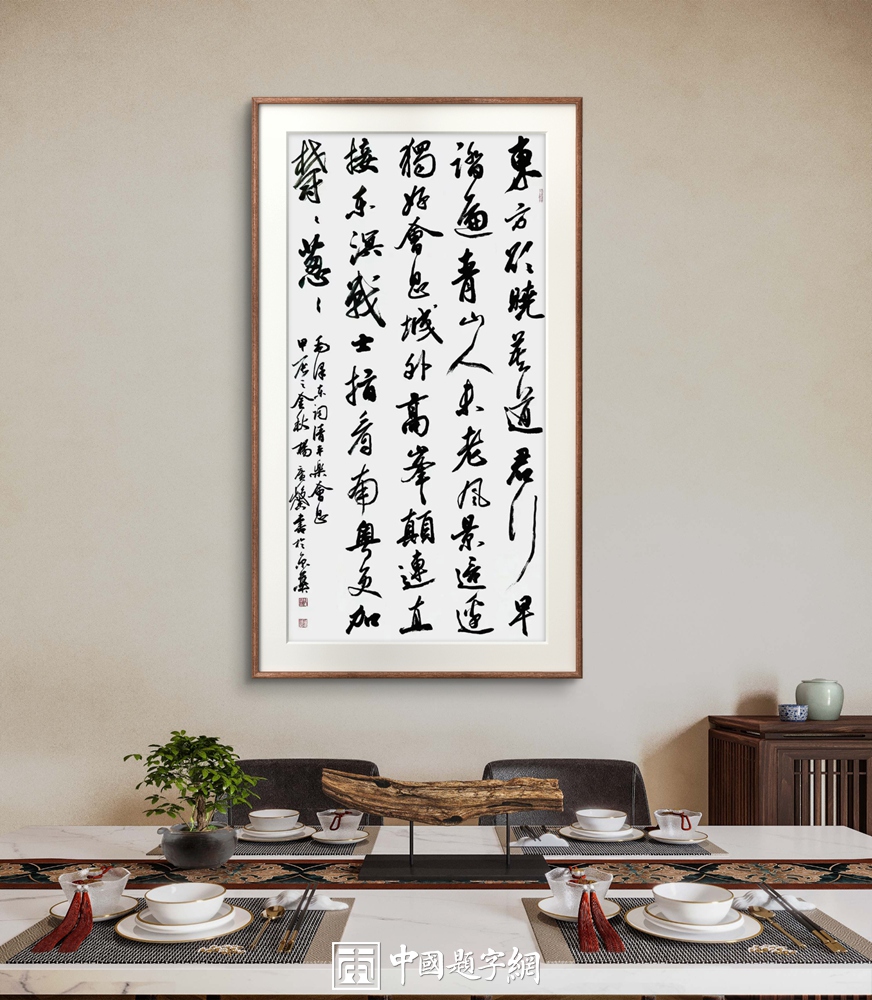 東方欲曉莫道君行早
踏遍青山人未老风景這邊
獨好會昌城外高峯顛連直
接东溟戰士指看南粵更加
鬱々葱々
毛泽东词清平樂會昌
甲辰之金秋楊广馨書於京華
中國題字網